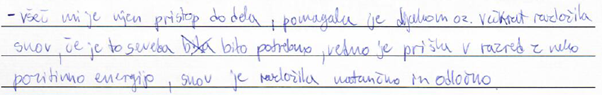 - všeč mi je njen pristop do dela, pomagala je dijakom oz. večkrat razložila
snov, če je to seveda bilo potrebno, vedno je prišla v razred z neko
pozitivno energijo, snov je razložila natančno in odločno